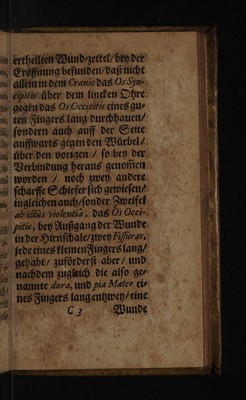 ertheilten Wund-zettel/ bey der
Eröffnung befunden/ daß nicht
allein in dem Cranio das Os Syn-
cipitis über dem lincken Ohre
gegen das Os Occipitis eines gu-
ten Fingers lang durchhauen/
sondern auch auff der Seite
auffwarts gegen den Würbel/
über den vorigen / so bey der
Verbindung heraus genom̃en
worden / noch zwey andere
scharffe Schiefer sich gewiesen/
ingleichen auch/ sonder Zweifel
ab ictus violentia, das Os Occi-
pitis, bey Außgang der Wunde
in der Hirnschale/ zwey Fissuras,
jede eines kleinen Fingers lang/
gehabt/ zuförderst aber/ und
nachdem zugleich die also ge-
nannte dura, und pia Mater ei-
nes Fingers lang entzwey/ eine
C 3 Wunde